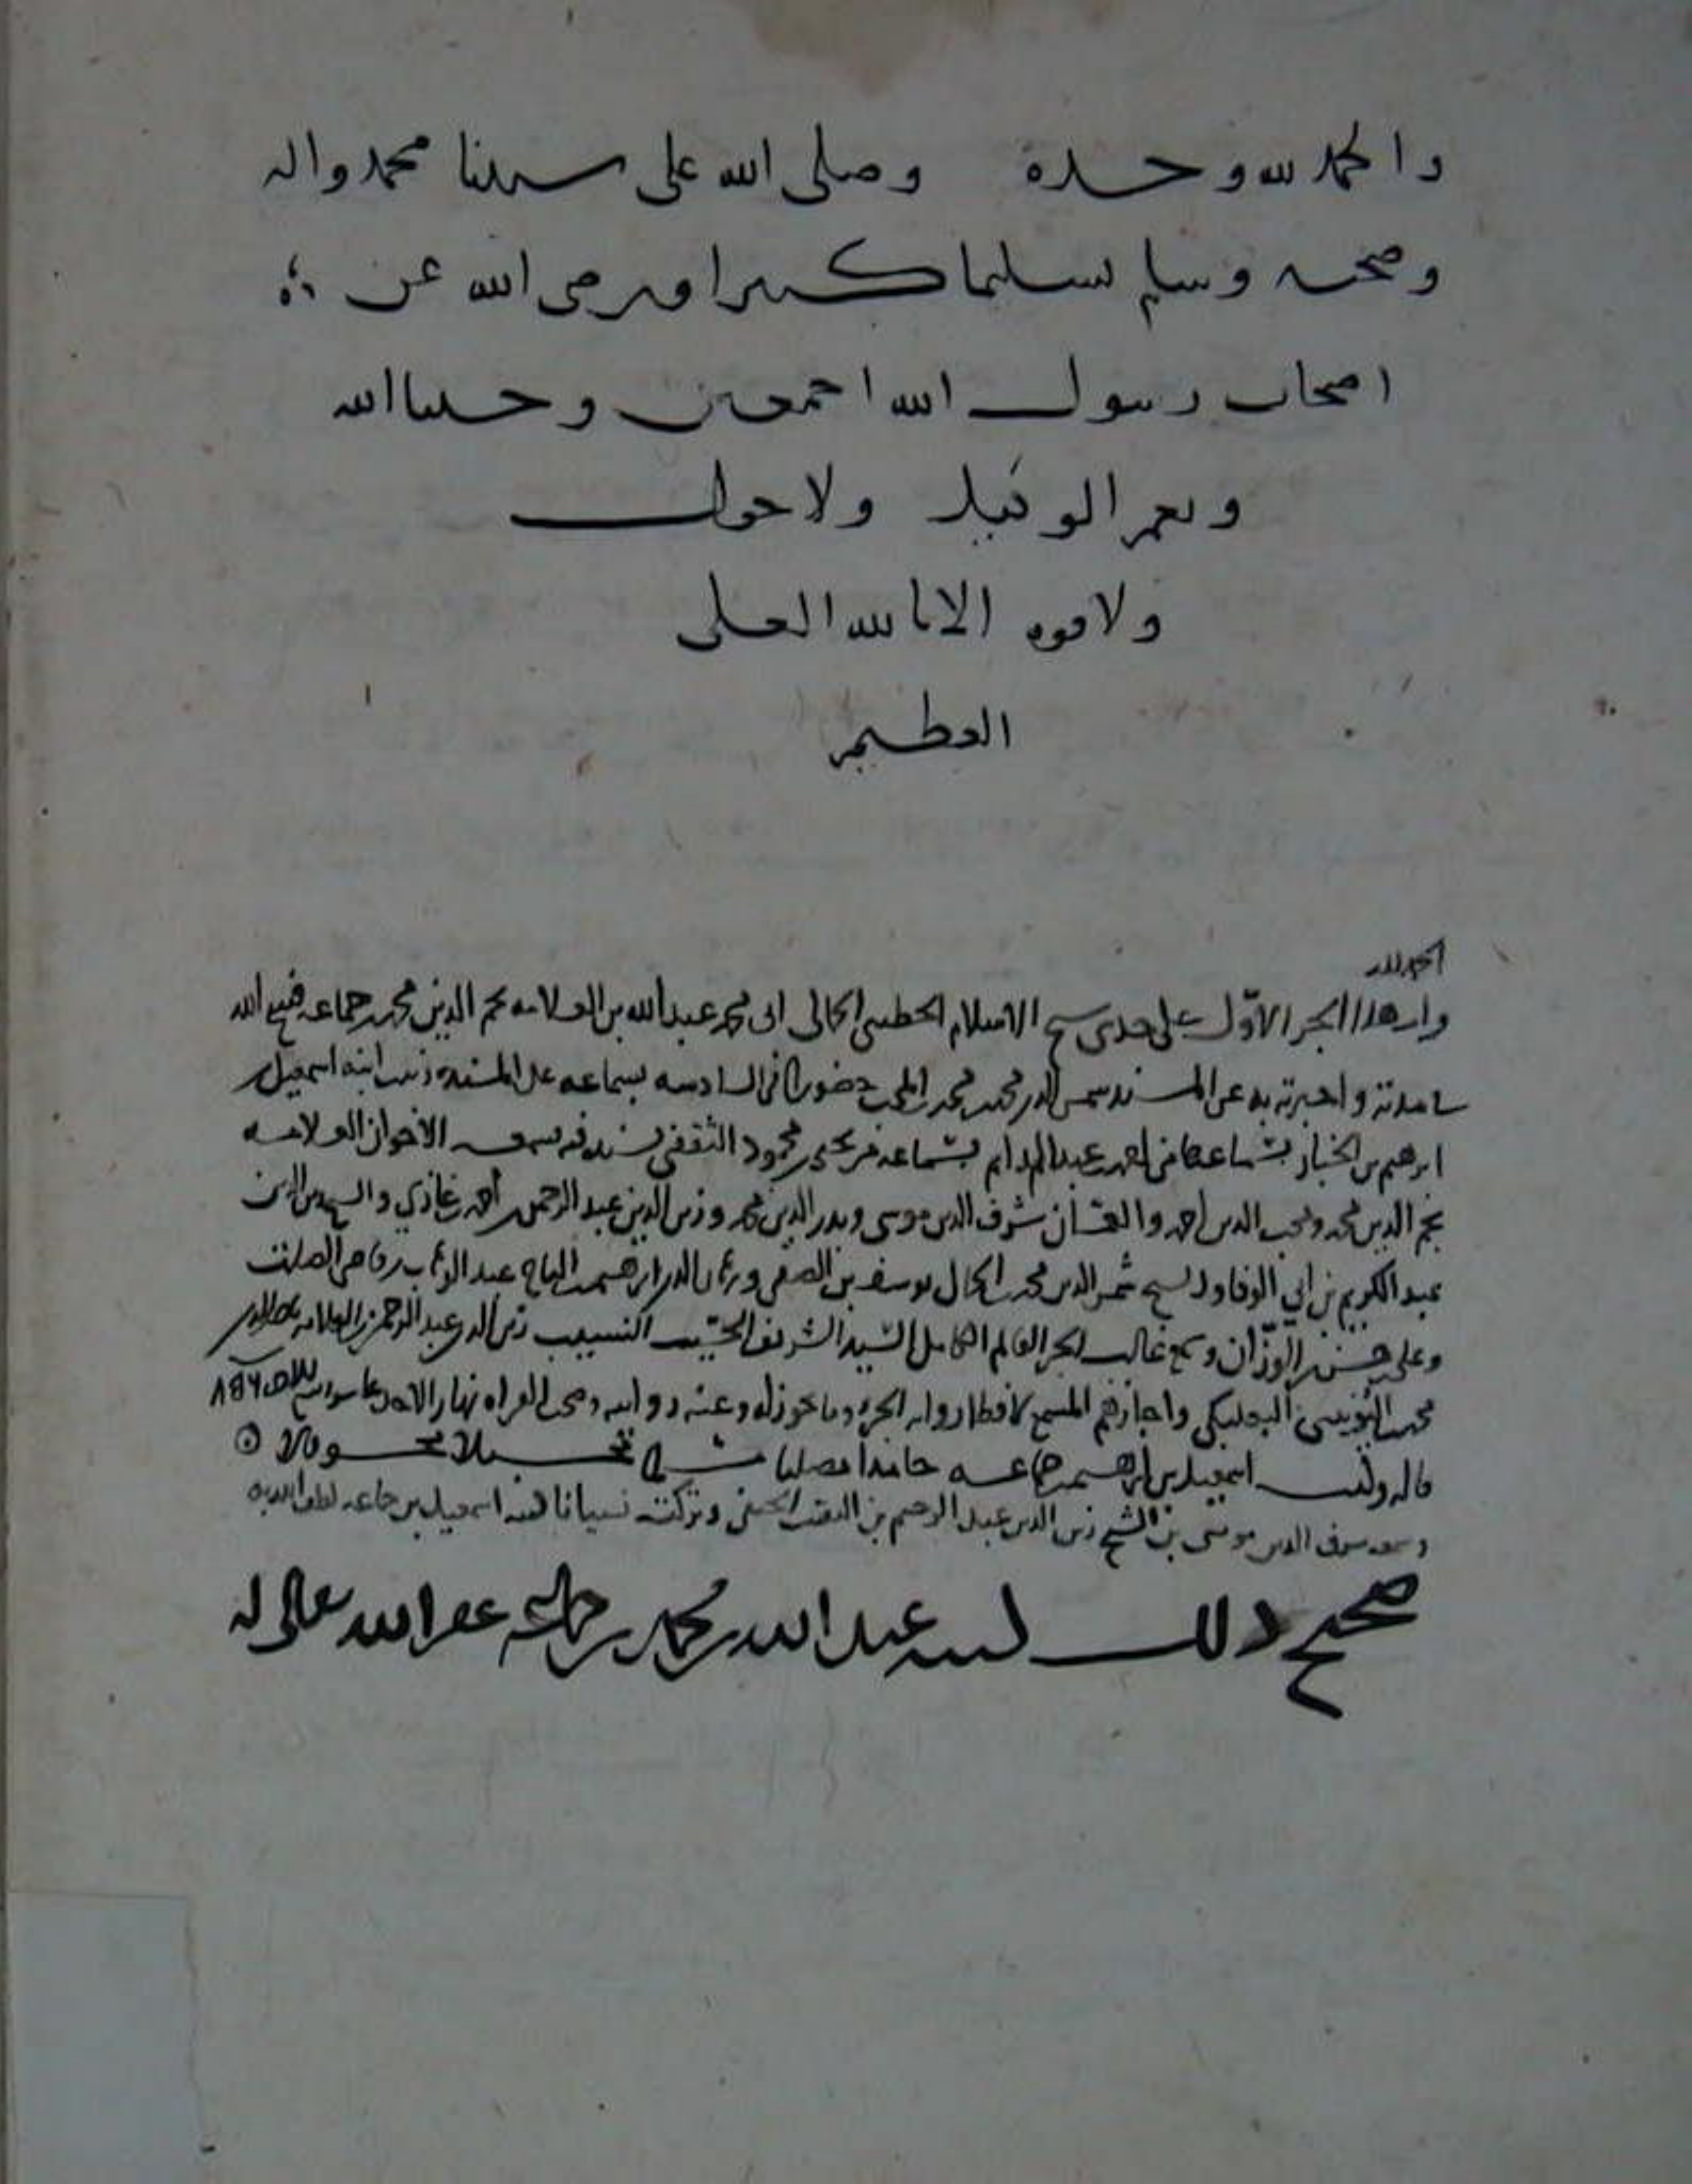 والحمد لله وحده وصلى الله على سيدنا محمد واله
وصحبه وسلم تسليما كثيرا ورضي الله عن
اصحاب رسول الله اجمعين وحسبنا الله
ونعم الوكيل ولا حول
ولا قوة الا بالله العلي
العظيم
الحمد لله
قرات هذا الجزء الاول على جدي شيخ الاسلام الخطيبي الجمالي ابي محمد عبد الله بن العلامة نجم الدين محمد بن جماعة فسح الله
واخبرته به عن المسند شمس الدين محمد بن محمد بن المحب حضورا في السادسة بسماعه على المسندة زينب ابنة اسمعيل بن
ابرهيم بن الخباز بسماعها من احمد بن عبد الدايم بسماعه من يحيى بن محمود الثقفي بسنده فيه فسمعه الاخوان العلامة
نجم الدين محمد ومحب الدين احمد شرف الدين موسى وبدر الدين محمد وزين الدين عبد الرحمن بن احمد بن غازي والشيخ زين الدين
عبد الكريم بن ابي الوفا وولد الشيخ شمس الدين محمد بن الجمال يوسف بن الصفي وبرهان الدين ابرهيم بن التاج عبد الوهاب بن قاضي الصلت
وعلي بن حسن بن الوزان وسمع غالب الجزء العالم الكامل السيد الشريف الحسيب النسيب زين الدين عبد الرحمن بن العلامة
محمد البعلبكي واجازهم المسمع رواية الجزء وما يجوز له وعنه روايته وصح القراة نهار الاحد
قاله وكتب اسمعيل بن ابرهيم بن جماعة حامدا مصليا مسلما محسبلا محوقلا
وسمعه شرف الدين موسى بن الشيخ زين الدين عبد الرحيم بن النقيب الحنفي وتركته نسيانا كتبه اسمعيل بن جماعة لطف الله به
صحيح ذلك كتبه عبد الله بن محمد بن جماعة غفر الله تعالى له